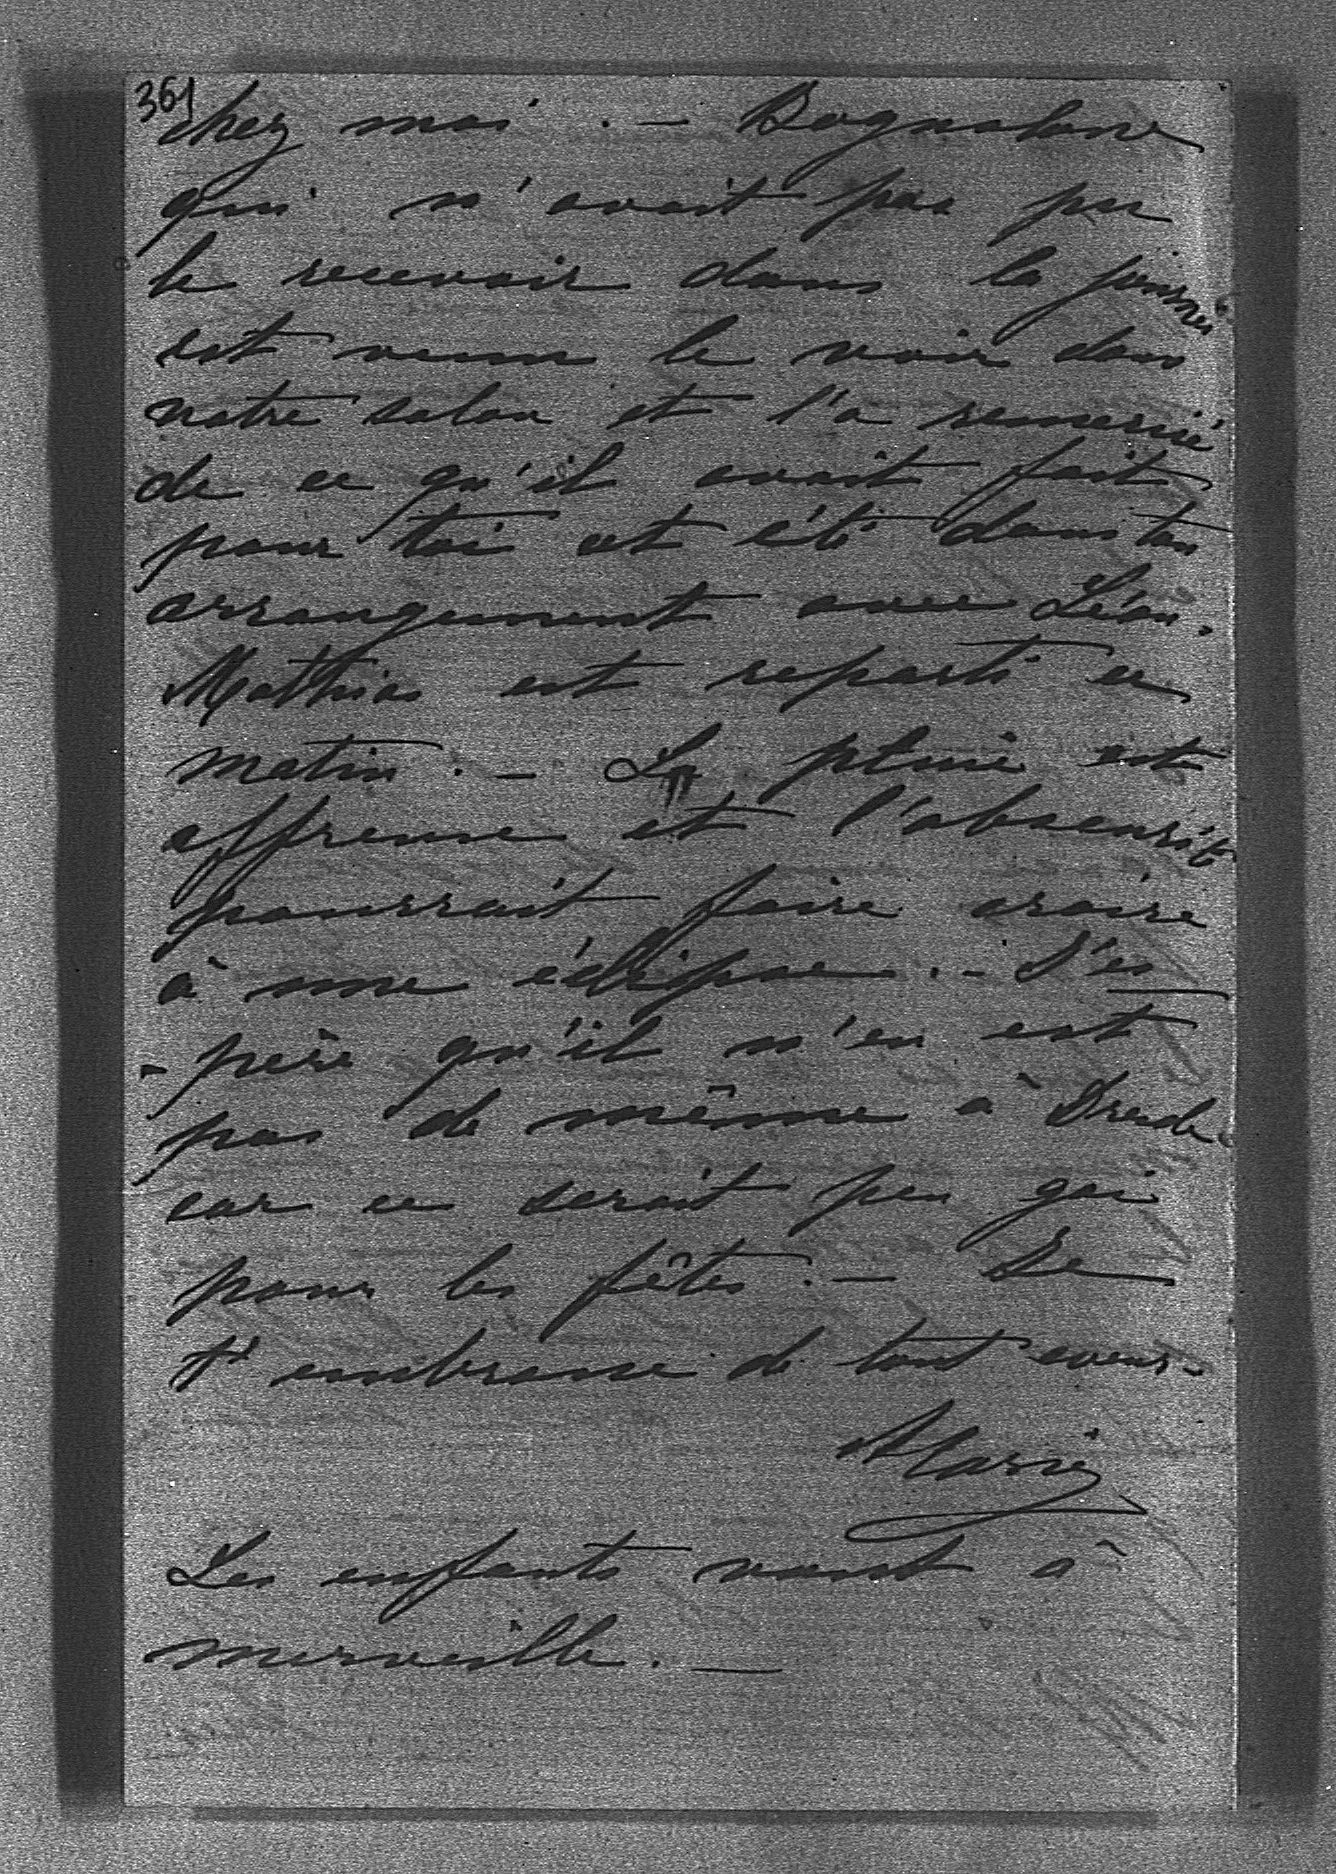 361
chez moi . —
qui n'avait pas pu
le recevoir dans la journée
est venu le voir dans
notre salon et l'a remercié
de ce qu'il avait fait
pour toi et été dans ton
arrangement avec Léon.
Mathias est reparti ce
matin . — La pluie est
affreuse et l'obscurité
pourrait faire croire
à une éclipse . — J'es
- père qu'il n'en est
pas de même à
car ce serait peu gai
pour les fêtes . — Je
t'embrasse de tout coeur.
Marie
Les enfants vont à
merveille . —